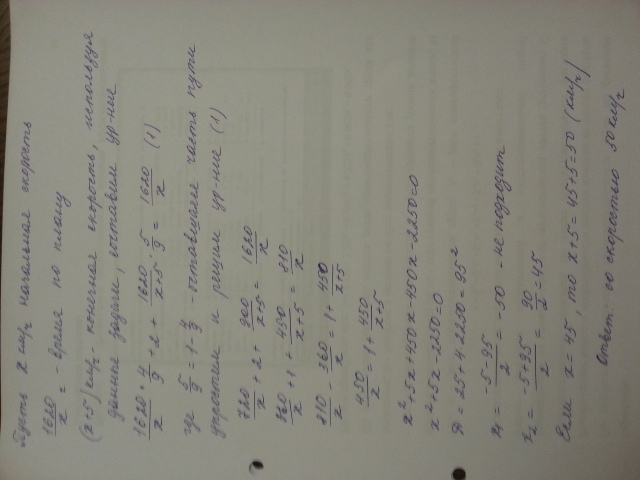 Пусть x км/ч начальная скорость
1620/x = - время по плану
(x+5) км/ч - конечная скорость, используя
данные задачи, составим ур-ние
1620·4/x·9 + 2 + 1620/x+5 · 5/9 = 1620/x (1)
где 5/9 = 1 - 4/9 - оставшаяся часть пути
упростим и решим ур-ние (1)
720/x + 2 + 900/x+5 = 1620/x
360/x + 1 + 450/x+5 = 810/x
810/x - 360/x = 1 + 450/x+5
450/x = 1 + 450/x+5
x²+5x+450x-450x-2250=0
x²+5x-2250=0
D = 25+4·2250 = 95²
x₁ = -5-95/2 = -50 - не подходит
x₂ = -5+95/2 = 90/2 = 45
Если x = 45, то x+5 = 45+5=50 (км/ч)
Ответ: со скоростью 50 км/ч